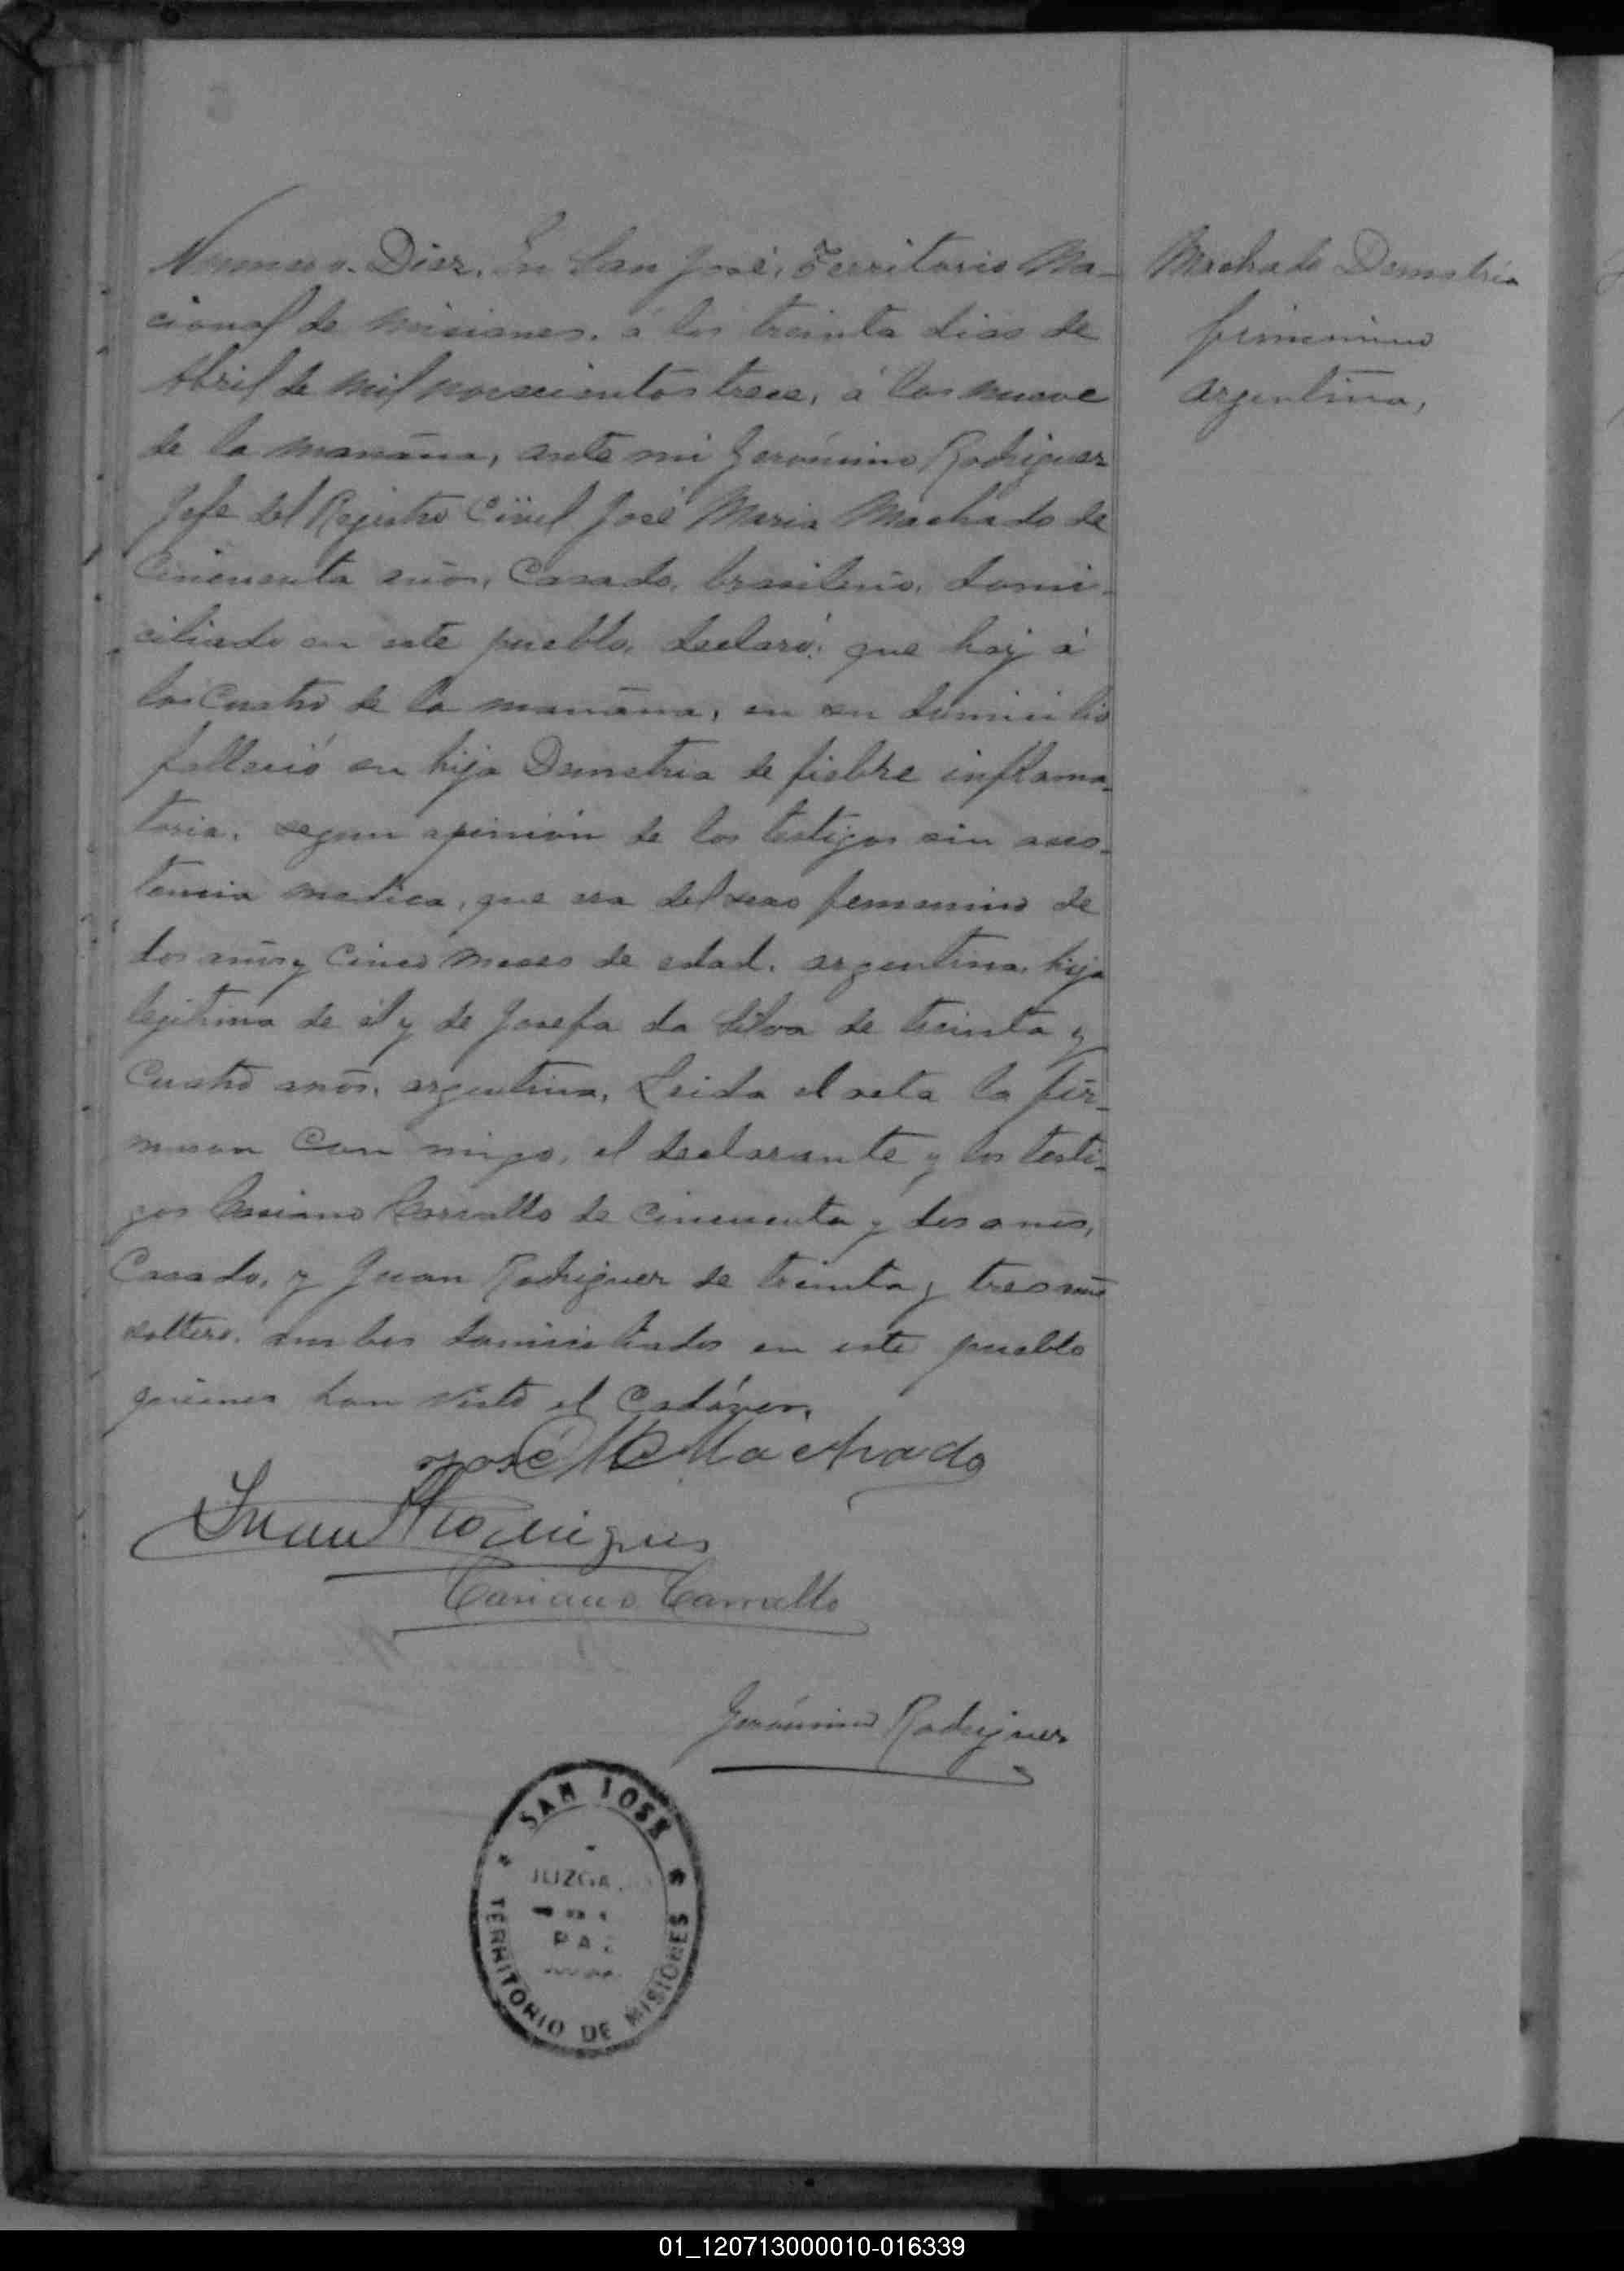 Numero. Diez. En San José, Territorio Na-
cional de Misiones, á los treinta dias de
Abril de mil novecientos trece, á las nueve
de la mañana, ante mi Gerónimo Rodriguez
Jefe del Registro Civil José Maria Machado de
cincuenta años, casado, brasilero, domi-
ciliado en este pueblo, declaró: que hoy á
las cuatro de la mañana, en su domicilio
falleció su hija Demetria de fiebre inflama-
toria, segun opinión de los testigos sin asis-
tencia medica, que era del sexo femenino de
dos años y cinco meses de edad, argentina, hija
legitima de él y de Josefa da Silva de treinta y
cuatro años, argentina, Leida el acta la fir-
maron con migo, el declarante y los testi-
gos Casiano Carvallo de cincuenta y dos años,
casado, y Juan Rodriguez de treinta y tres años
soltero, ambos domiciliados en este pueblo
quienes han visto el cadáver.
José M Machado
Juan Rodrigues
Casiano Carvallo
Gerónimo Rodriguez
Machado Demetria
femenino
argentina,
SAN JOSE
JUZGA
PAZ
TERRITORIO DE MISIONES
01_120713000010-016339